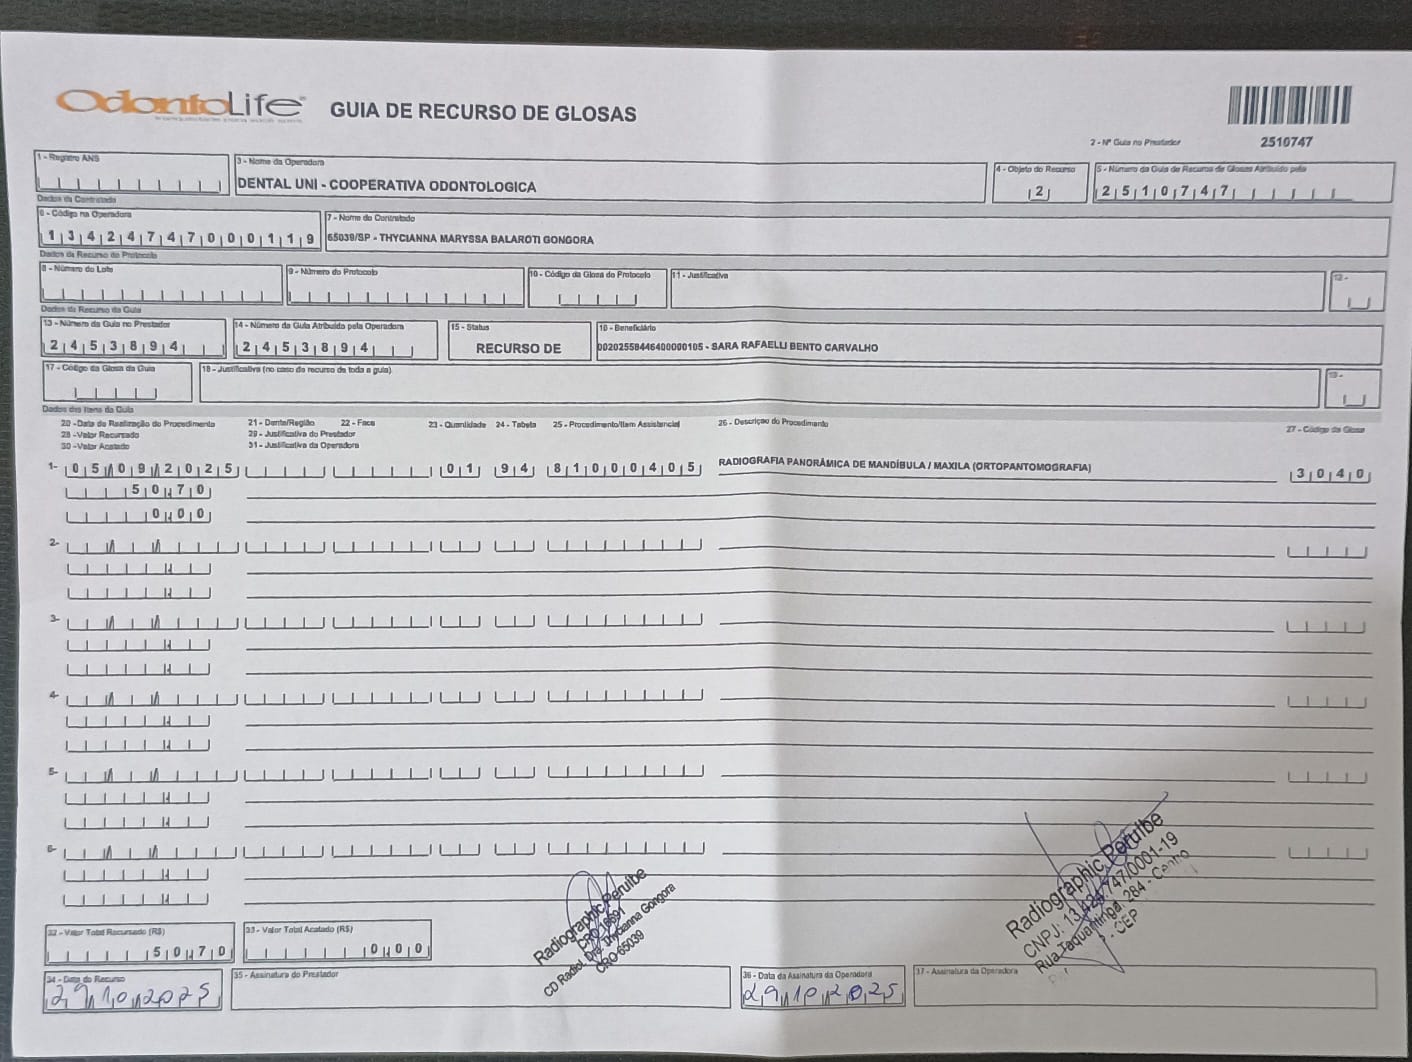 OdontoLife
GUIA DE RECURSO DE GLOSAS
2 - Nº Guia no Prestador
2510747
1 - Registro ANS
3 - Nome da Operadora
DENTAL UNI - COOPERATIVA ODONTOLOGICA
4 - Objeto do Recurso
2
5 - Número da Guia de Recurso de Glosas Atribuído pela
2510747
Dados do Contratado
6 - Código na Operadora
13424747000119
7 - Nome do Contratado
65039/SP - THYCIANNA MARYSSA BALAROTI GONGORA
Dados do Recurso do Protocolo
8 - Número do Lote
9 - Número do Protocolo
10 - Código da Glosa do Protocolo
11 - Justificativa
12 -
Dados do Recurso da Guia
13 - Número da Guia no Prestador
2453894
14 - Número da Guia Atribuída pela Operadora
2453894
15 - Status
RECURSO DE
16 - Beneficiário
00202558446400000105 - SARA RAFAELLI BENTO CARVALHO
17 - Código da Glosa da Guia
18 - Justificativa (no caso de recurso de toda a guia)
19 -
Dados dos Itens da Guia
20 - Data de Realização do Procedimento 21 - Dente/Região 22 - Face 23 - Quantidade 24 - Tabela 25 - Procedimento/Item Assistencial 26 - Descrição do Procedimento 27 - Código da Glosa
28 - Valor Recursado 29 - Justificativa do Prestador
30 - Valor Acatado 31 - Justificativa da Operadora
1- 05/09/2025 01 94 81000405 RADIOGRAFIA PANORÂMICA DE MANDÍBULA / MAXILA (ORTOPANTOMOGRAFIA) 3040
50,70
0,00
2-
3-
4-
5-
6-
32 - Valor Total Recursado (R$)
50,70
33 - Valor Total Acatado (R$)
0,00
Radiographic Peruíbe
CRO 16691
CD Radiol. Dra. Thycianna Gongora
CRO 65039
Radiographic Peruíbe
CNPJ: 13.424.747/0001-19
Rua Taquaritinga, 284 - Centro
- CEP
34 - Data do Recurso
29/10/2025
35 - Assinatura do Prestador
36 - Data da Assinatura da Operadora
29/10/2025
37 - Assinatura da Operadora